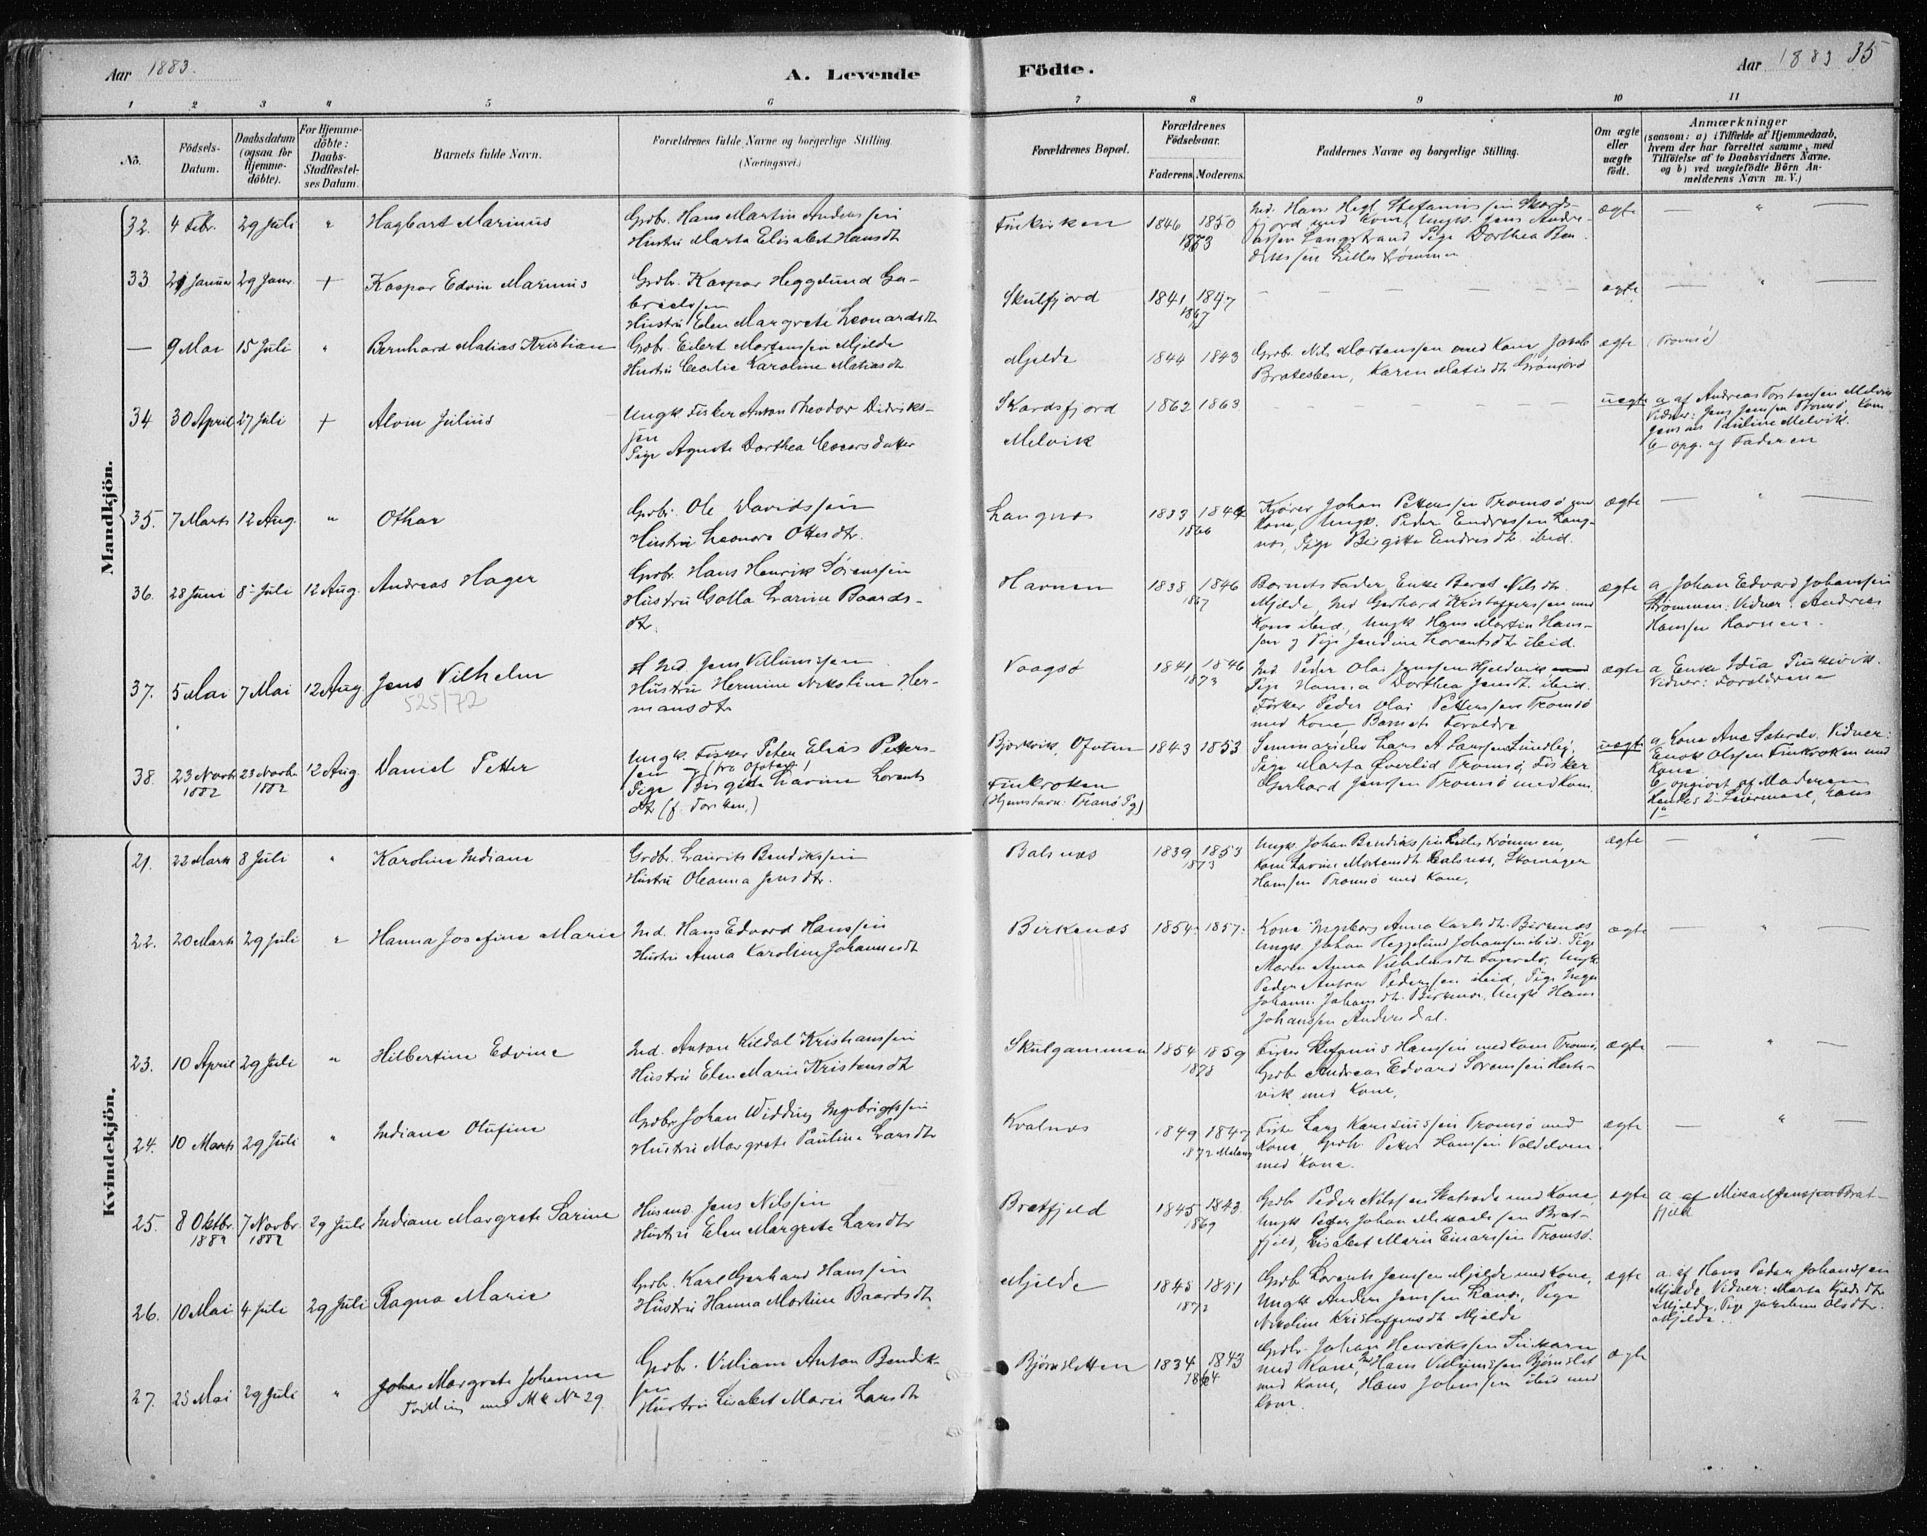 Aar 1883.
A. Levende Födte.
Aar 1883 35
1 2 3 4 5 6 7 8 9 10 11
Nô.
Födsels-Datum.
Daabsdatum (ogsaa för Hjemme-döbte).
For Hjemme-döbte: Daabs-Stadfæstel-ses Datum.
Barnets fulde Navn.
Forældrenes fulde Navne og borgerlige Stilling (Næringsvei.)
Forældrenes Bopæl.
Forældrenes Födselsaar.
Faderens. Moderens.
Faddernes Navne og borgerlige Stilling.
Om ægte eller uægte födt.
Anmærkninger
(saasom: a) i Tilfælde af Hjemmedaab, hvem der har forrettet samme, med Tilföielse af to Daabsvidners Navne. og b) ved uægtefödte Börn An-melderens Navn m. V.)
Mandkjön.
32. 4 Febr. 29 Juli " Hagbart Marinus
Grdbr. Hans Martin Anderssen
Hustru Marta Elisabet Hansdt
Finkroken 1846 1850 1873
ægte — " —
33 29 Januar 29 Janr. + Kaspar Edvin Marinus
Grdbr. Kaspar Heggelund Ga-
brielssen
Hustru Elen Margrete Leonardsdt
Skulfjord 1841 1847 1867
ægte — " —
— 9 Mai 15 Juli " Bernhard Matias Kristian
Grdbr. Eilert Mortensen Mjelde
Hustru Cecilie Karoline Matiasdt
Mjelde 1844 1843
Grdbr. Nils Mortenssen med Kone, Jakob
Bratesben, Karen Matisdt Grönjord
ægte (Tromsö)
34 30 April 27 Juli + Alvin Julius
Ungk. Fisker Anton Theodor Didriks-
sen
Pige Agnete Dorthea Davidsdatter
Skardsfjord
Melvik
1862 1863
uægte a af Andreas Torstensen Melvik
Vidner: Jens Jensen Tromsö, Kone
Pauline Melvik.
b opg. af Faderen
35. 7 Marts 12 Aug. " Othar
Grdbr. Ole Davidssen
Hustru Leonora Ottesdtr.
Langnes 1833 1844 1866
Kjører Johan Petterssen Tromsö med
Kone, Ungk. Peder Endressen Lang-
nes, Pige Birgitte Endresdt. ibid.
ægte — " —
36. 28 Juni 8 Juli 12 Aug. Andreas Hager
Grdbr. Hans Henrik Sörenssen
Hustru Golla Larine Baards-
dt.
Havnen 1838 1846 1867
Barnets Fader, Enke Beret Nilsdt
Mjelde, Ind Gerhard Kristofferssen med
Kone ibid, Ungk. Hans Martin Hans-
sen og Pige Jendine Lorentsdt ibid.
ægte a Johan Edvard Johansen
Strömmen. Vidner: Andreas
Hansen Havnen.
37. 5 Mai 7 Mai 12 Aug Jens Vilhelm
525/72
Ind. Jens Villumssen
Hustru Hermine Nikoline Her-
mansdt
Vaagsö 1841 1846 1873
Ind. Peder Olai Jenssen Hjeldvik med
Pige Hanna Dorthea Jensdt. ibid.
Fisker Peder Olai Petterssen Tromsö
med Kone Barnets Foræ­ldre
ægte a. Enke Idia Finkevik.
Vidner: Forældrene
38. 23 Novbr. 1882 23 Novbr. 1882 12 Aug. Daniel Petter
Ungk. Fisker Peter Elias Petters-
sen (fra Ofoten)
Pige Birgitte Larine Lorents
dt (f. Torsken.)
Bjerkvik, Ofoten
Finkroken
(Hjemstavn: Tranö Pg)
1843 1853
Seminarielev Lars A Larssen Lundlej,
Pige Marta Överlid Tromsö, Fisker
Gerhard Jenssen Tromsö med Kone.
uægte
Enok Olssen Finkroken med
Kone
b opgivet af Moderen
Kvindekjön.
21. 22 Marts 8 Juli " Karoline Indiane
Grdbr. Laurits Bendikssen
Hustru Oleanna Jensdtr.
Balsnæs 1839 1853 1873
Ungk Johan Bendikssen Lille Strömmen,
Kone Larine Mortensdt Balsnes, Skomager
Hanssen Tromsö med Kone.
ægte — " —
22. 20 Marts 29 Juli " Hanna Josefine Marie
Ind. Hans Edvard Hanssen
Hustru Anna Karoline Johannesdt
Birkenæs 1854. 1857.
Kone Ingeborg Anna Karlsdt. Birkenæs
Ungk. Johan Heggelund Johansen ibid. Pige
Maren Anna Vilhelmsdt Ungk
Peder Anton Pederssen ibid, Pige Inger
Johanne Johansdt Birkenes, Ungk Hans
Johanssen Andersdal.
ægte — " —
23. 10 April 29 Juli " Hilbertine Edvine
Ind. Anton Kildal Kristianssen
Hustru Elen Marie Kristensdt
Skulgammen 1854 1859 1878
Fisker Stefanus Hanssen med Kone Tromsö,
Grdb. Andreas Edvard Sörenssen Hess-
vik med Kone.
ægte — " —
24. 10 Marts 29 Juli " Indiana Olufine
Grdbr Johan Widding Ingebrigtssen
Hustru Margrete Pauline Larsdt
Kvalnæs 1849 1847 1872
Fisker Lars Kareliussen Tromsö med
Kone, Grdb. Peter Hanssen
med Kone.
ægte — " —
25. 8 Oktbr. 1882 7 Novbr. 1882 29 Juli Indiane Margrete Sarine
Husmd. Jens Nilssen
Hustru Elen Margrete Larsdtr
Bratfjeld 1845 1843 1869
Grdb Peder Nilssen med Kone
Ungk Peder Johan Mikkalssen Brat-
fjeld, Elisabet Marie Einarssen Tromsö.
ægte a af Mikael Jenssen Brat-
fjeld
26. 10 Mai 4 Juli 29 Juli Ragna Marie
Grdb. Karl Gerhard Hanssen
Hustru Hanna Martine Baardsdt
Mjelde 1845 1851 1873
Grdb Lorents Jenssen Mjelde med Kone,
Ungk Anders Jenssen Pige
Nikoline Kristoffersdt Mjelde
ægte a. af Hans Peder Johanssen
Mjelde, Vidner: Marta
Mjelde, Pige Olsdtr.
Mjelde.
27. 25 Mai 29 Juli " Johan Margrete Johanna
Tvilling med Mk No 29.
Grdb. Villiam Anton Bendik-
sen
Hustru Lisabet Marie Larsdt
Björnsletten 1834 1843 1864
Grdbr. Johan Henrikssen
med Kone, Ind Hans Villumssen Björnslet
med Kone, Hans Johnssen ibid med
Kone.
ægte